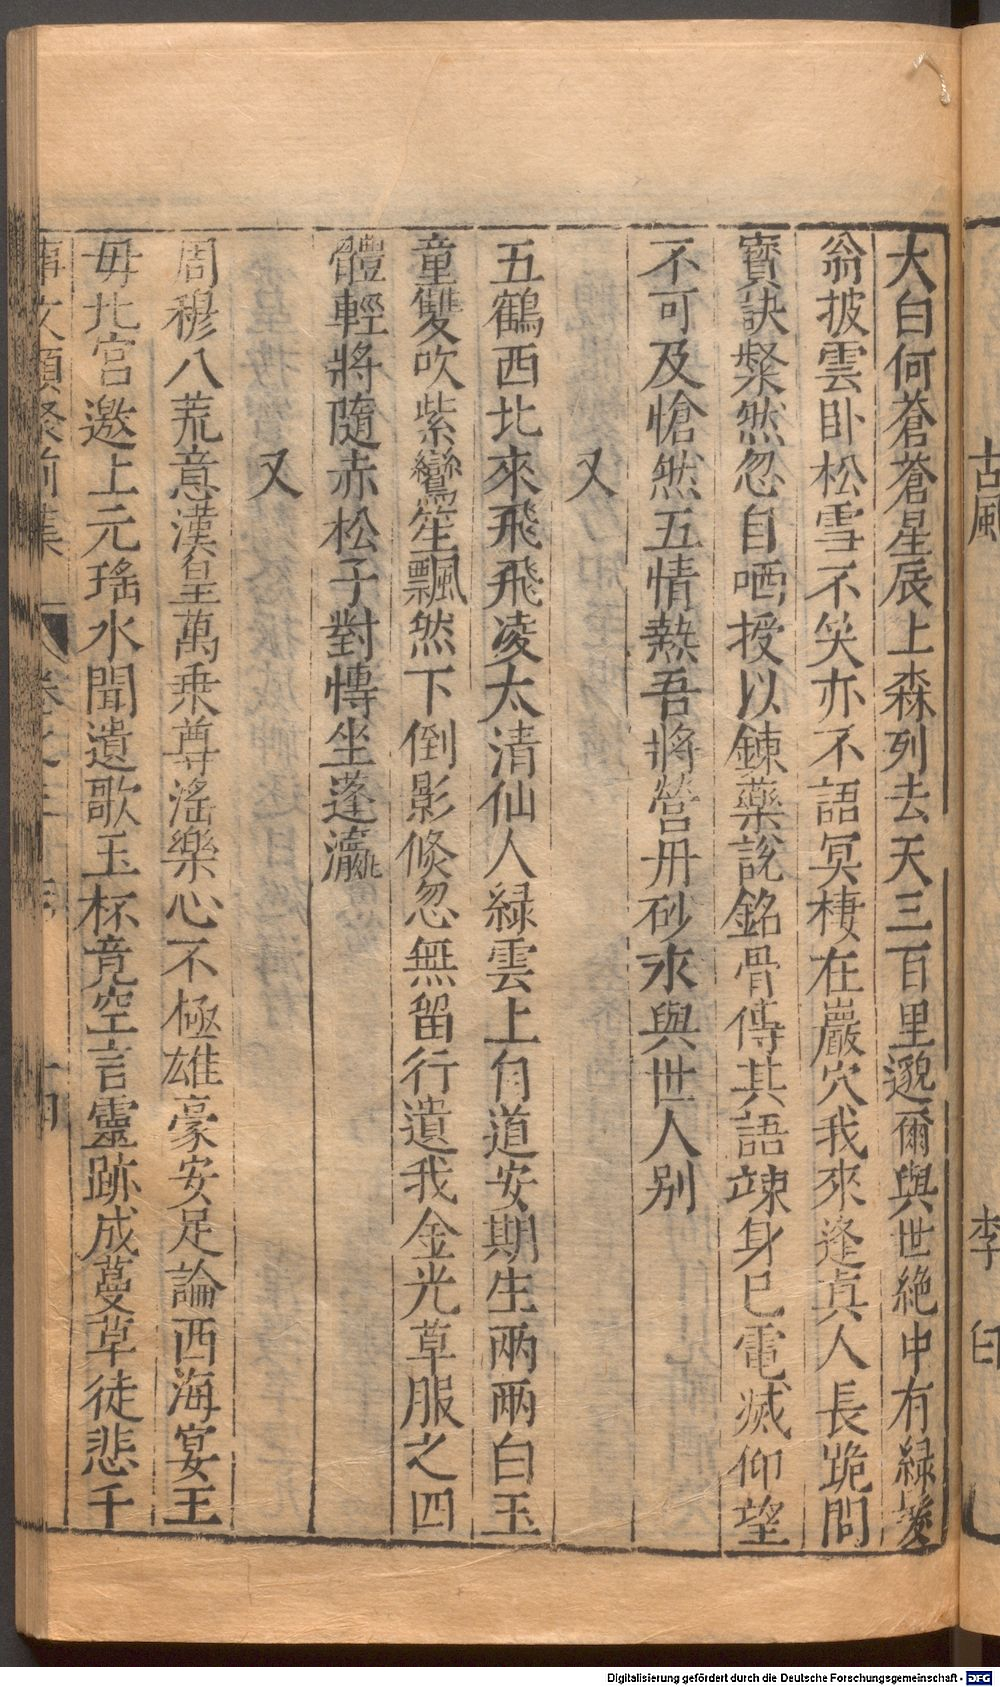 古風
李白
大白何蒼蒼星辰上森列去天三百里邈爾與世絶中有緑髮
翁披雲卧松雪不笑亦不語冥棲在巖穴我來逢真人長跪問
寳訣粲然忽自哂授以鍊藥說銘骨傳其語竦身已電㓕仰望
不可及愴然五情熱吾將營丹砂永與世人别
又
五鶴西北來飛飛凌太清仙人緑雲上自道安期生兩兩白玉
童雙吹紫鸞笙飄然下倒影倐忽無留行遺我金光草服之四
體輕將隨赤松子對慱坐蓬瀛
又
周穆八荒意漢皇萬乗尊滛樂心不極雄豪安足論西海宴王
母北宮邀上元瑤水聞遺歌玉杯竟空言靈跡成蔓草徒悲千
事文類聚前集 卷之三 十四
Digitalisierung gefördert durch die Deutsche Forschungsgemeinschaft - DFG